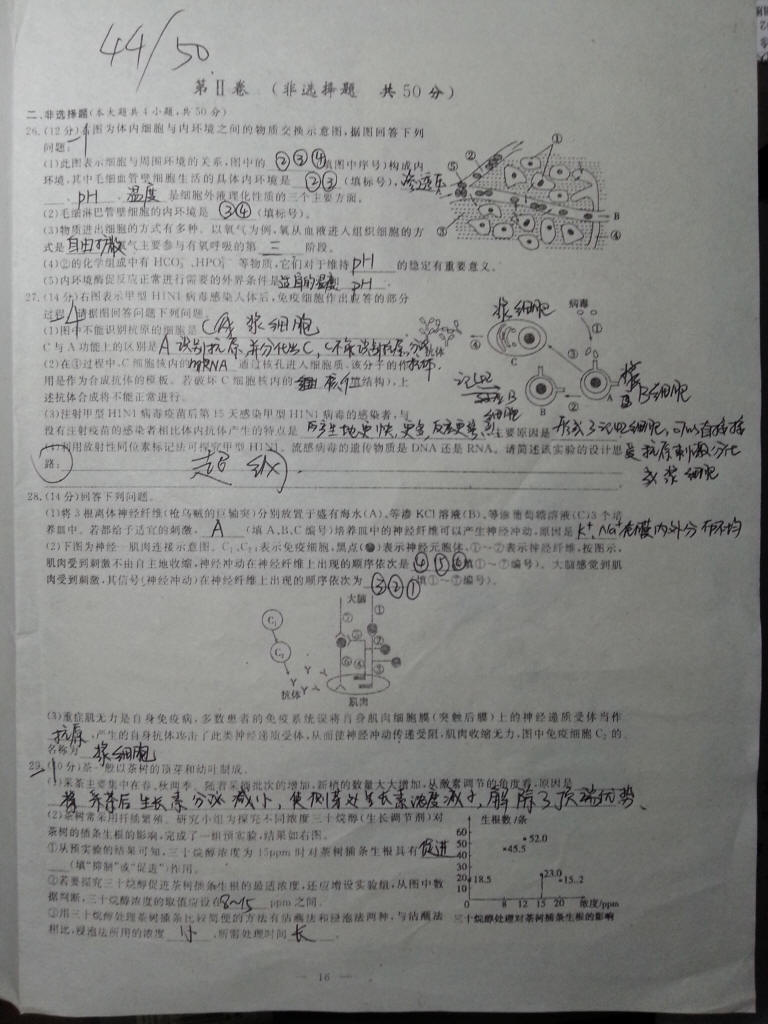 44/50
第Ⅱ卷 (非选择题 共50分)
二、非选择题(本大题共4小题,共50分)
26.(12分)右图为体内细胞与内环境之间的物质交换示意图,据图回答下列
问题:
(1)此图表示细胞与周围环境的关系,图中的 ②③④(填图中序号)构成内
环境,其中毛细血管壁细胞生活的具体内环境是 ②③ (填标号),渗透压
、pH、温度 是细胞外液理化性质的三个主要方面。
(2)毛细淋巴管壁细胞的内环境是 ③④ (填标号)。
(3)物质进出细胞的方式有多种。以氧气为例,氧从血液进入组织细胞的方
式是 自由扩散 氧气主要参与有氧呼吸的第 三 阶段。
(4)②的化学组成中有HCO₃⁻、HPO₄²⁻等物质,它们对于维持 pH 的稳定有重要意义。
(5)内环境酶促反应正常进行需要的外界条件是 适宜的温度 pH.
① ② ⑤ ③ B ④
27.(14分)右图表示甲型H1N1病毒感染人体后,免疫细胞作出应答的部分
过程,请据图回答问题下列问题。
(1)图中不能识别抗原的细胞是 C 浆细胞
C与A功能上的区别是 A 识别抗原,并分化出C, C不能识别抗原,分泌抗体.
(2)在①过程中,C细胞核内的 mRNA 通过核孔进入细胞质,该分子的作
用是作为合成抗体的模板。若破坏C细胞核内的 核仁 (结构),上
述抗体合成将不能正常进行。
(3)注射甲型H1N1病毒疫苗后第15天感染甲型H1N1病毒的感染者,与
没有注射疫苗的感染者相比体内抗体产生的特点是 产生地更快,更多,反应更 主要原因是 形成了记忆细胞,可以直接接
受抗原刺激分化
成浆细胞
(4)利用放射性同位素标记法可探究甲型H1N1流感病毒的遗传物质是DNA还是RNA。请简述试实验的设计思
路: 超级.
浆细胞 病毒 抗体 ④ C ① ③ A ② B B细胞 记忆 B 细胞
28.(14分)回答下列问题。
(1)将3根离体神经纤维(枪乌贼的巨轴突)分别放置于盛有海水(A)、等渗KCl溶液(B)、等渗葡萄糖溶液(C)3个培
养皿中。若都给予适宜的刺激, A (填A、B、C编号)培养皿中的神经纤维可以产生神经冲动,原因是 K⁺、Na⁺在膜内外分布不均
(2)下图为神经—肌肉连接示意图。C₁、C₂表示免疫细胞,黑点(●)表示神经元胞体,①~⑦表示神经纤维,按图示,
肌肉受到刺激不由自主地收缩,神经冲动在神经纤维上出现的顺序依次是 ④⑤⑥(填①~⑦编号)。大脑感觉到肌
肉受到刺激,其信号(神经冲动)在神经纤维上出现的顺序依次为 ③②①(填①~⑦编号)。
大脑 C₁ C₂ 抗体 ① ② ③ ④ ⑤ ⑥ ⑦ 肌肉
(3)重症肌无力是自身免疫病,多数患者的免疫系统误将自身肌肉细胞膜(突触后膜)上的神经递质受体当作
抗原,产生的自身抗体攻击了此类神经递质受体,从而使神经冲动传递受阻,肌肉收缩无力,图中免疫细胞C₂的
名称为 浆细胞
29.(10分)茶一般以茶树的顶芽和幼叶制成。
(1)采茶主要集中在春、秋两季。随着采摘批次的增加,新梢的数量大大增加,从激素调节的角度看,原因是
摘 芽后生长素分泌减少,使侧芽处生长素浓度减小,解除了顶端优势、
(2)茶树常采用扦插繁殖。研究小组为探究不同浓度三十烷醇(生长调节剂)对
茶树的插条生根的影响,完成了一组预实验,结果如右图。
①从预实验的结果可知,三十烷醇浓度为15ppm时对茶树插条生根具有 促进
(填“抑制”或“促进”)作用。
②若要探究三十烷醇促进茶树插条生根的最适浓度,还应增设实验组,从图中数
据判断,三十烷醇浓度的取值应设在 8~15 ppm之间。
③用三十烷醇处理茶树插条比较简便的方法有沾蘸法和浸泡法两种,与沾蘸法
相比,浸泡法所用的浓度 小 ,所需处理时间 长 。
生根数/条
60 50 40 30 20 10 0
18.5 45.5 52.0 23.0 15.2
8 12 15 20 浓度/ppm
三十烷醇处理对茶树插条生根的影响
— 16 —